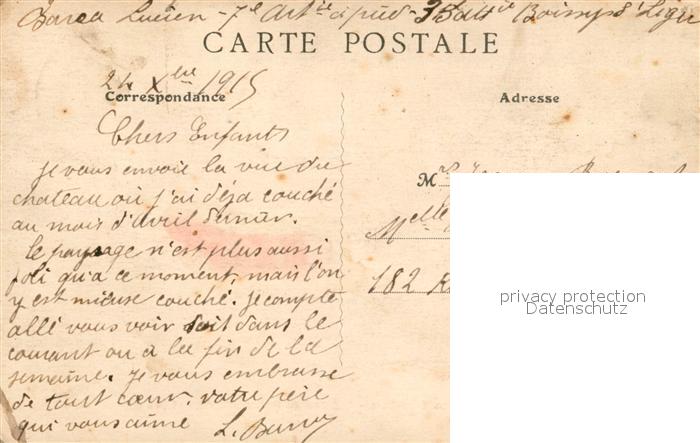 Lucien - 7e Artie à pied - Battie Boissy St Léger
CARTE POSTALE
24 Xbre 1915
Correspondance
Adresse
Chers Enfants
je vous envoie la vue du
chateau où j'ai déja couché
au mois d'avril dernier.
le paysage n'est plus aussi
joli qu'a ce moment, mais l'on
y est mieuse couché. je compte
allé vous voir soit dans le
courant ou a la fin de la
semaine. je vous embrasse
de tout cœur. votre père
qui vous aime L.
M
Melle
182 R
privacy protection
Datenschutz